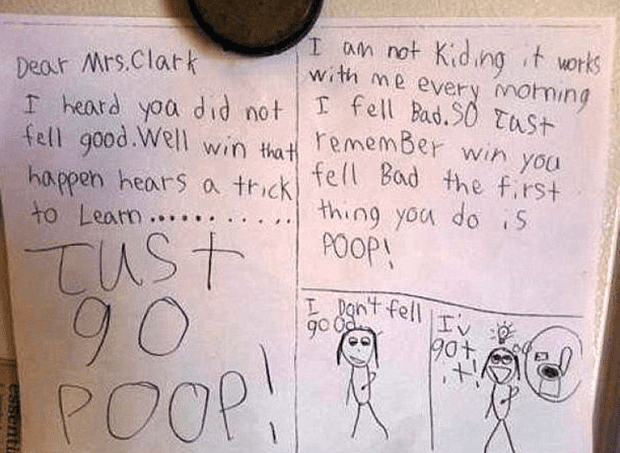 Dear Mrs.Clark
I heard you did not
fell good.Well win that
happen hears a trick
to Learn............
JUST
go
POOP!
I am not Kiding it works
with me every morning
I fell Bad.SO Just
remember win you
fell Bad the first
thing you do is
POOP!
I Don't fell
good
I'v
got
it!
essenti